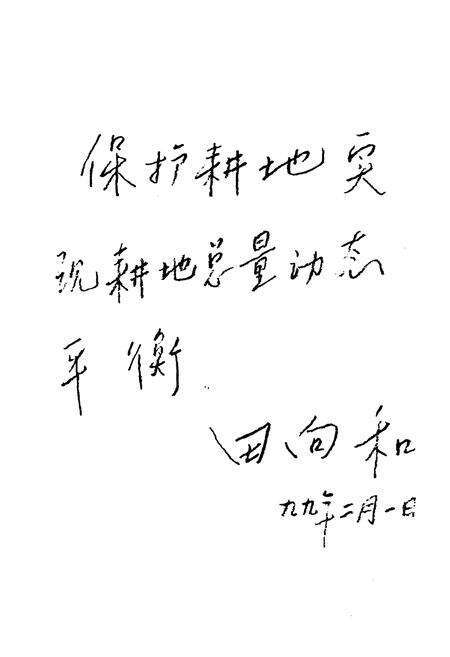 保护耕地实
现耕地总量动态
平衡
田向和
九九年二月一日